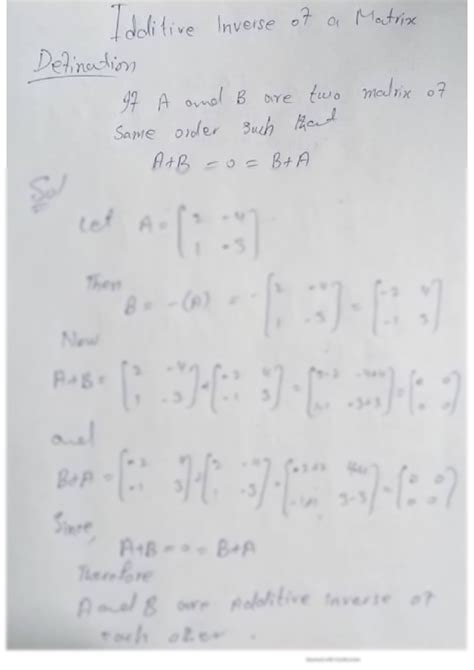 Idditive Inverse of a Matrix
Defination
If A and B are two matrix of
Same order such that
A+B = 0 = B+A
Sol
Let A = [2 -4
1 -3]
Then
B = -(A) = -[2 -4
1 -3] = [-2 4
-1 3]
Now
A+B = [2 -4
1 -3] + [-2 4
-1 3] = [2-2 -4+4
1-1 -3+3] = [0 0
0 0]
and
B+A = [-2 4
-1 3] + [2 -4
1 -3] = [-2+2 4-4
-1+1 3-3] = [0 0
0 0]
Since,
A+B = 0 = B+A
Therefore
A and B are Additive inverse of
each other.